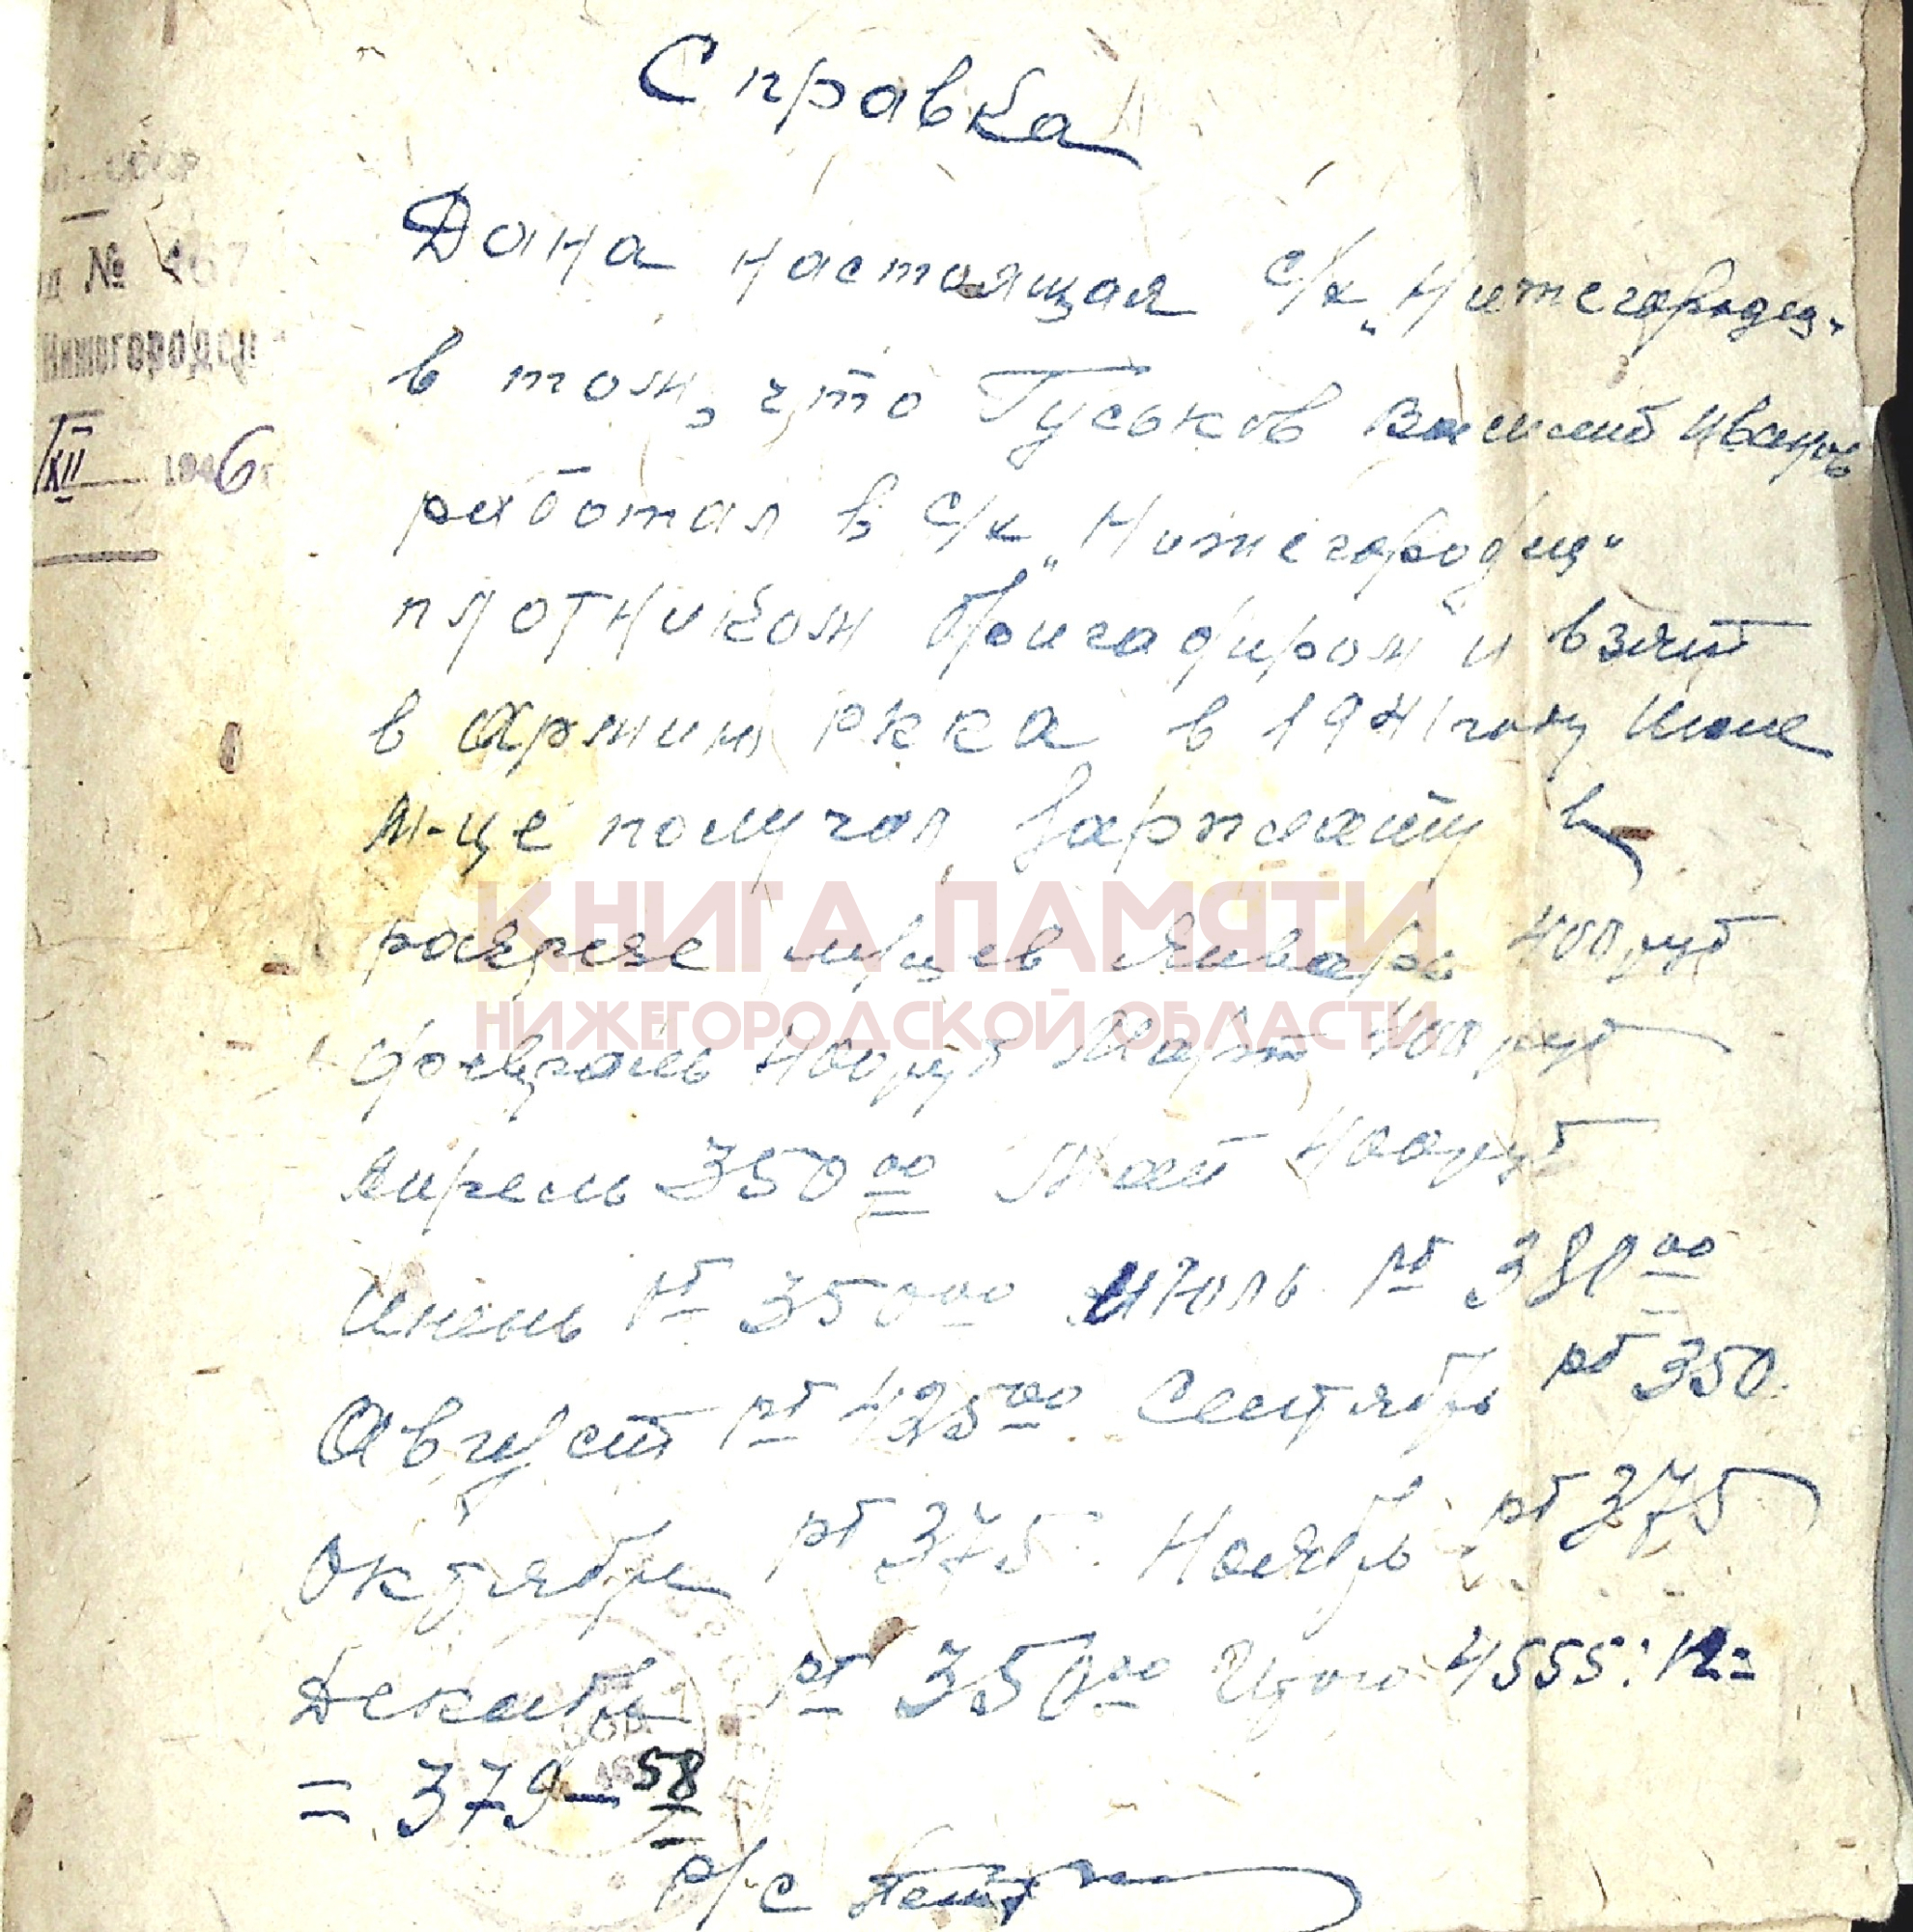 Справка
СССР
№ 167
Нижегородец
XII 1946 г
Дана настоящая с/х „Нижегородец"
в том, что Гуськов Василий Иванов
работал в с/х „Нижегородец"
плотником бригадиром и взят
в Армию РККА в 1941 году Июле
м-це получал зарплату в
разрезе м/цев Январь 400 руб
февраль 400 руб Март 400 руб
Апрель 350 00 Май 400 руб
Июнь рб 350 00 Июль рб 380 00
Август рб 425 00 Сентябрь рб 350
Октябрь рб 375 Ноябрь рб 375
Декабрь рб 350 00 Итого 4555 : 12 =
= 379 – 58
р/с
КНИГА ПАМЯТИ
НИЖЕГОРОДСКОЙ ОБЛАСТИ